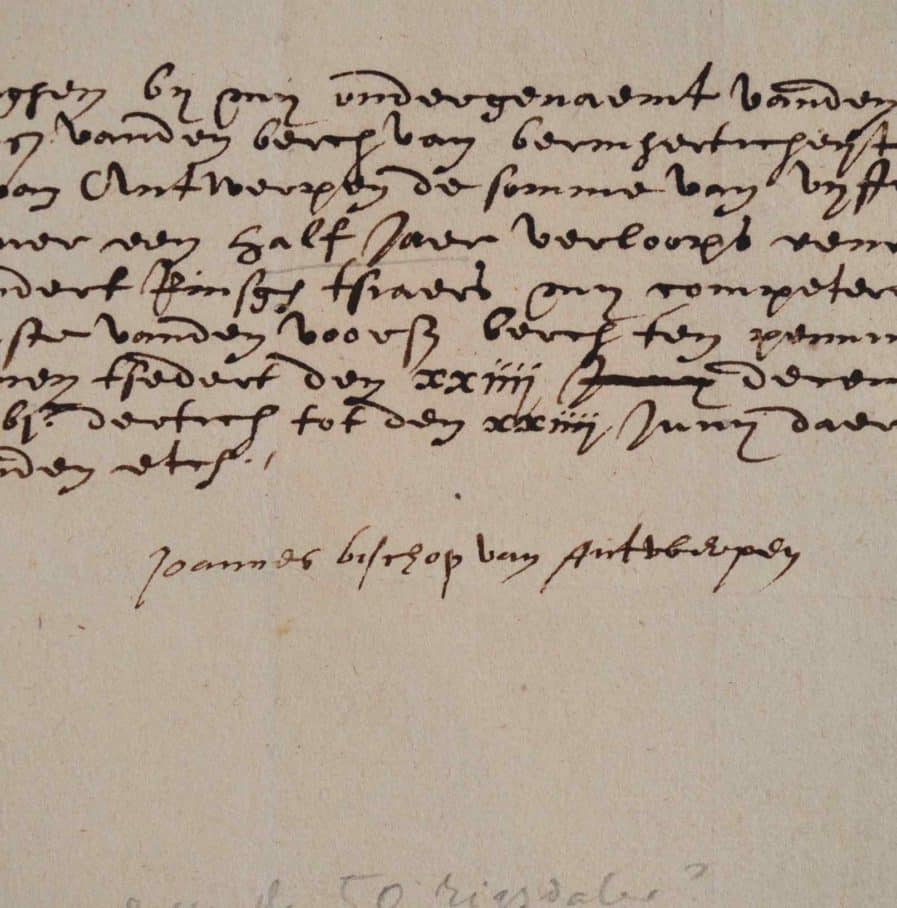 ghen bij mij ondergenaemt vanden
vanden berch van bermherticheyt
van Antwerpen de somme van vijff
over een half Jaer verloops ren
ndert Rinsch tsiaers mij competer
ste vanden voorss berch ten penni
nen tsedert den xxiiij decem
bc dertich tot den xxiiij Junij daer
nden etc.
Joannes bisschop van Antwerpen
50 Rigsdaler?